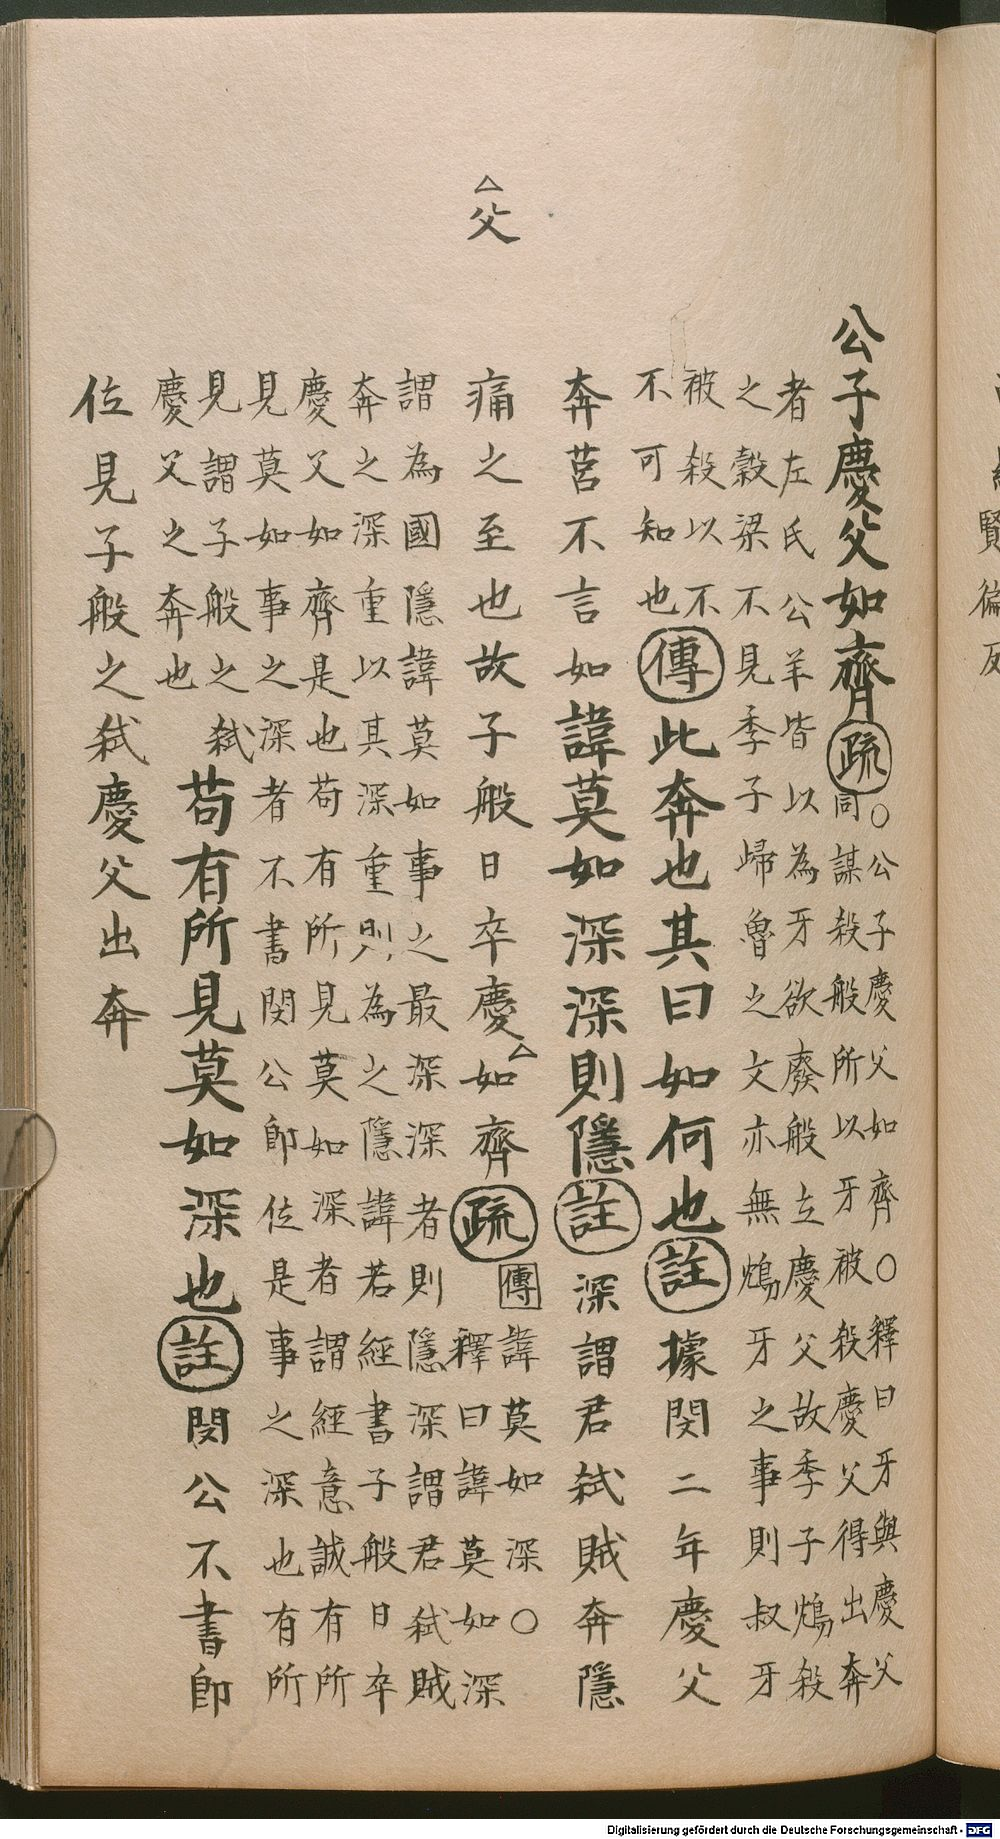 公子慶父如齊疏○公子慶父如齊○釋曰牙與慶父
同謀殺般所以牙被殺慶父得出奔
者左氏公羊皆以為牙欲廢般立慶父故季子鴆殺
之穀梁不見季子歸魯之文亦無鴆牙之事則叔牙
被殺以不
不可知也傳此奔也其曰如何也註據閔二年慶父
奔莒不言如諱莫如深深則隱註深謂君弒賊奔隱
△父
痛之至也故子般日卒慶△如齊疏傳諱莫如深○
釋曰諱莫如深
謂為國隱諱莫如事之最深深者則隱深謂君弒賊
奔之深重以其深重則為之隱諱若經書子般日卒
慶父如齊是也苟有所見莫如深者謂經意誠有所
見莫如事之深者不書閔公即位是事之深也有所
見謂子般之弒
慶父之奔也苟有所見莫如深也註閔公不書即
位見子般之弒慶父出奔
Digitalisierung gefördert durch die Deutsche Forschungsgemeinschaft - DFG